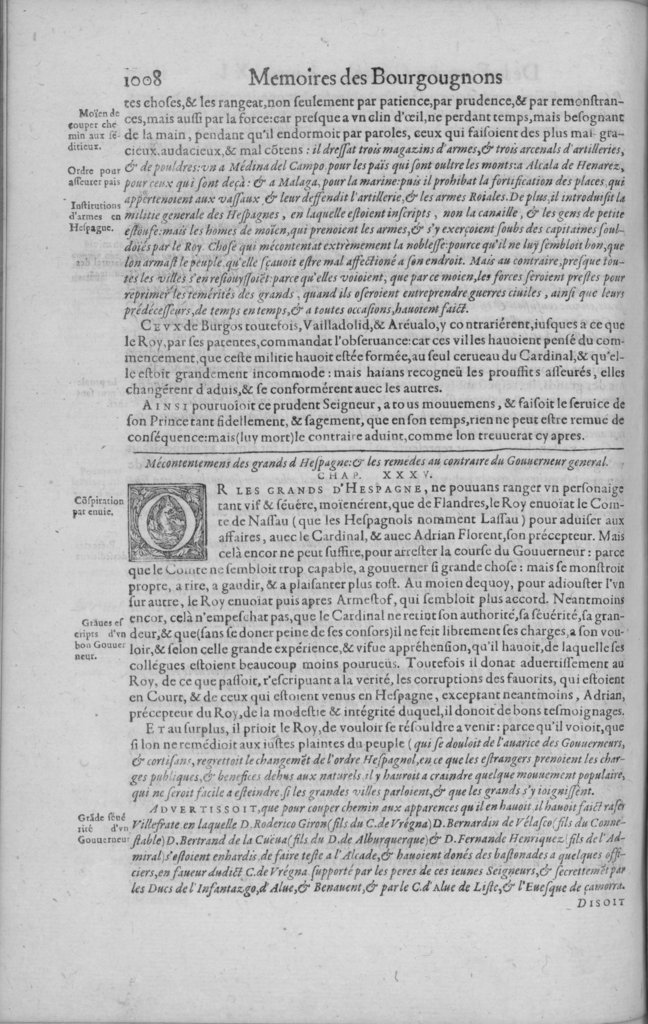 1008 Memoires des Bourgougnons
tes choſes,& les rangeat,non ſeulement par patience,par prudence,& par remonſtran-
ces,mais auſſi par la force:car preſque a vn clin d'œil,ne perdant temps,mais beſognant
Moïen de
couper che
min aux ſé-
ditieux.
de la main, pendant qu'il endormoit par paroles, ceux qui faiſoient des plus mai-gra-
cieux,audacieux,& mal cõtens : il dreſſat trois magazins d'armes,& trois arcenals d'artilleries,
& de pouldres:vn a Médina del Campo,pour les païs qui ſont oultre les monts:a Alcala de Henarez,
Ordre pour
aſſeurer païs
pour ceux qui ſont deçà : & a Malaga,pour la marine:puis il prohibat la fortification des places,qui
appertenoient aux vaſſaux & leur deffendit l'artillerie,& les armes Roiales.De plus,il introduiſit la
Inſtitutions
d'armes en
Heſpagne.
militie generale des Heſpagnes , en laquelle eſtoient inſcripts , non la canaille , & les gens de petite
eſtouſe:mais les homes de moïen,qui prenoient les armes,& s'y exerçoient ſoubs des capitaines ſoul-
doiés par le Roy. Choſe qui mécontentat extrèmement la nobleſſe:pource qu'il ne luy ſembloit bon,que
lon armaſt le peuple,qu'elle ſçauoit eſtre mal affectioné a ſon endroit. Mais au contraire,preſque tou-
tes les villes s'en reſiouyſſoiẽt:parce qu'elles voioient, que par ce moien,les forces ſeroient preſtes pour
reprimer les temérités des grands , quand ils oſeroient entreprendre guerres ciuiles , ainſi que leurs
prédéceſſeurs,de temps en temps,& a toutes occaſions,hauoient faict.
CEVX de Burgos toutefois,Vailladolid,& Aréualo,y contrariérent,iuſques a ce que
le Roy,par ſes patentes,commandat l'obſeruance:car ces villes hauoient penſé du com-
mencement,que ceſte militie hauoit eſtée formée,au ſeul cerueau du Cardinal,& qu'el-
le eſtoit grandement incommode : mais haians recogneü les prouffits aſſeurés , elles
changérent d'aduis,& ſe conformérent auec les autres.
AINSI pouruoioit ce prudent Seigneur, a tous mouuemens , & faiſoit le ſeruice de
ſon Prince tant fidellement, & ſagement, que en ſon temps,rien ne peut eſtre remue de
conſéquence:mais(luy mort)le contraire aduint,comme lon treuuerat cy apres.
Mécontentemens des grands d Heſpagne:& les remedes au contraire du Gouuerneur general.
CHAP. XXXV.
Cõſpiration
par enuie.
OR LES GRANDS D'HESPAGNE, ne pouuans ranger vn perſonaige
tant vif & ſéuére, moïenérent,que de Flandres,le Roy enuoiat le Com-
te de Naſſau ( que les Heſpagnols nomment Laſſau ) pour aduiſer aux
affaires , auec le Cardinal,& auec Adrian Florent,ſon précepteur. Mais
celà encor ne peut ſuffire,pour arreſter la courſe du Gouuerneur : parce
que le Comte ne ſembloit trop capable, a gouuerner ſi grande choſe : mais ſe monſtroit
propre, a rire, a gaudir, & a plaiſanter plus toſt. Au moien dequoy, pour adiouſter l'vn
ſur autre, le Roy enuoiat puis apres Armeſtof, qui ſembloit plus accord. Neantmoins
encor, celà n'empeſchat pas,que le Cardinal ne retint ſon authorité,ſa ſéuérité,ſa gran-
Gráues eſ
cripts d'vn
bon Gouuer
neur.
deur,& que(ſans ſe doner peine de ſes conſors)il ne feit librement ſes charges,a ſon vou-
loir,& ſelon celle grande expérience,& vifue appréhenſion,qu'il hauoit,de laquelle ſes
collégues eſtoient beaucoup moins pourueus. Toutefois il donat aduertiſſement au
Roy, de ce que paſſoit, r'eſcripuant a la verité, les corruptions des fauorits, qui eſtoient
en Court, & de ceux qui eſtoient venus en Heſpagne, exceptant neantmoins , Adrian,
précepteur du Roy,de la modeſtie & intégrité duquel,il donoit de bons teſmoignages.
ET au ſurplus, il prioit le Roy,de vouloir ſe réſouldre a venir : parce qu'il voioit,que
ſi lon ne remédioit aux iuſtes plaintes du peuple ( qui ſe douloit de l'auarice des Gouuerneurs,
& cortiſans, regrettoit le changemẽt de l'ordre Heſpagnol,en ce que les eſtrangers prenoient les char-
ges publiques,& benefices dehus aux naturels : il y hauroit a craindre quelque mouuement populaire,
qui ne ſeroit facile a eſteindre,ſi les grandes villes parloient,& que les grands s'y ioigniſſent.
Gráde ſéué
rité d'vn
Gouuerneur
ADVERTISSOIT,que pour couper chemin aux apparences qu'il en hauoit,il hauoit faict raſer
Villefrate,en laquelle D.Roderico Giron(fils du C.de Vrégna)D.Bernardin de Vélaſco(fils du Conne-
ſtable)D.Bertrand de la Cuéua(fils du D.de Alburquerque)& D.Fernande Henriquez(fils de l'Ad-
miral)s'eſtoient enhardis,de faire teſte a l'Alcade,& hauoient donés des baſtonades a quelques offi-
ciers,en faueur dudict C.de Vrégna,ſupporté par les peres de ces ieunes Seigneurs,& ſecrettemẽt par
les Ducs de l'Infantazgo,d'Alue,& Benauent,& par le C.d'Alue de Liſte,& l'Eueſque de çamorra.
DISOIT